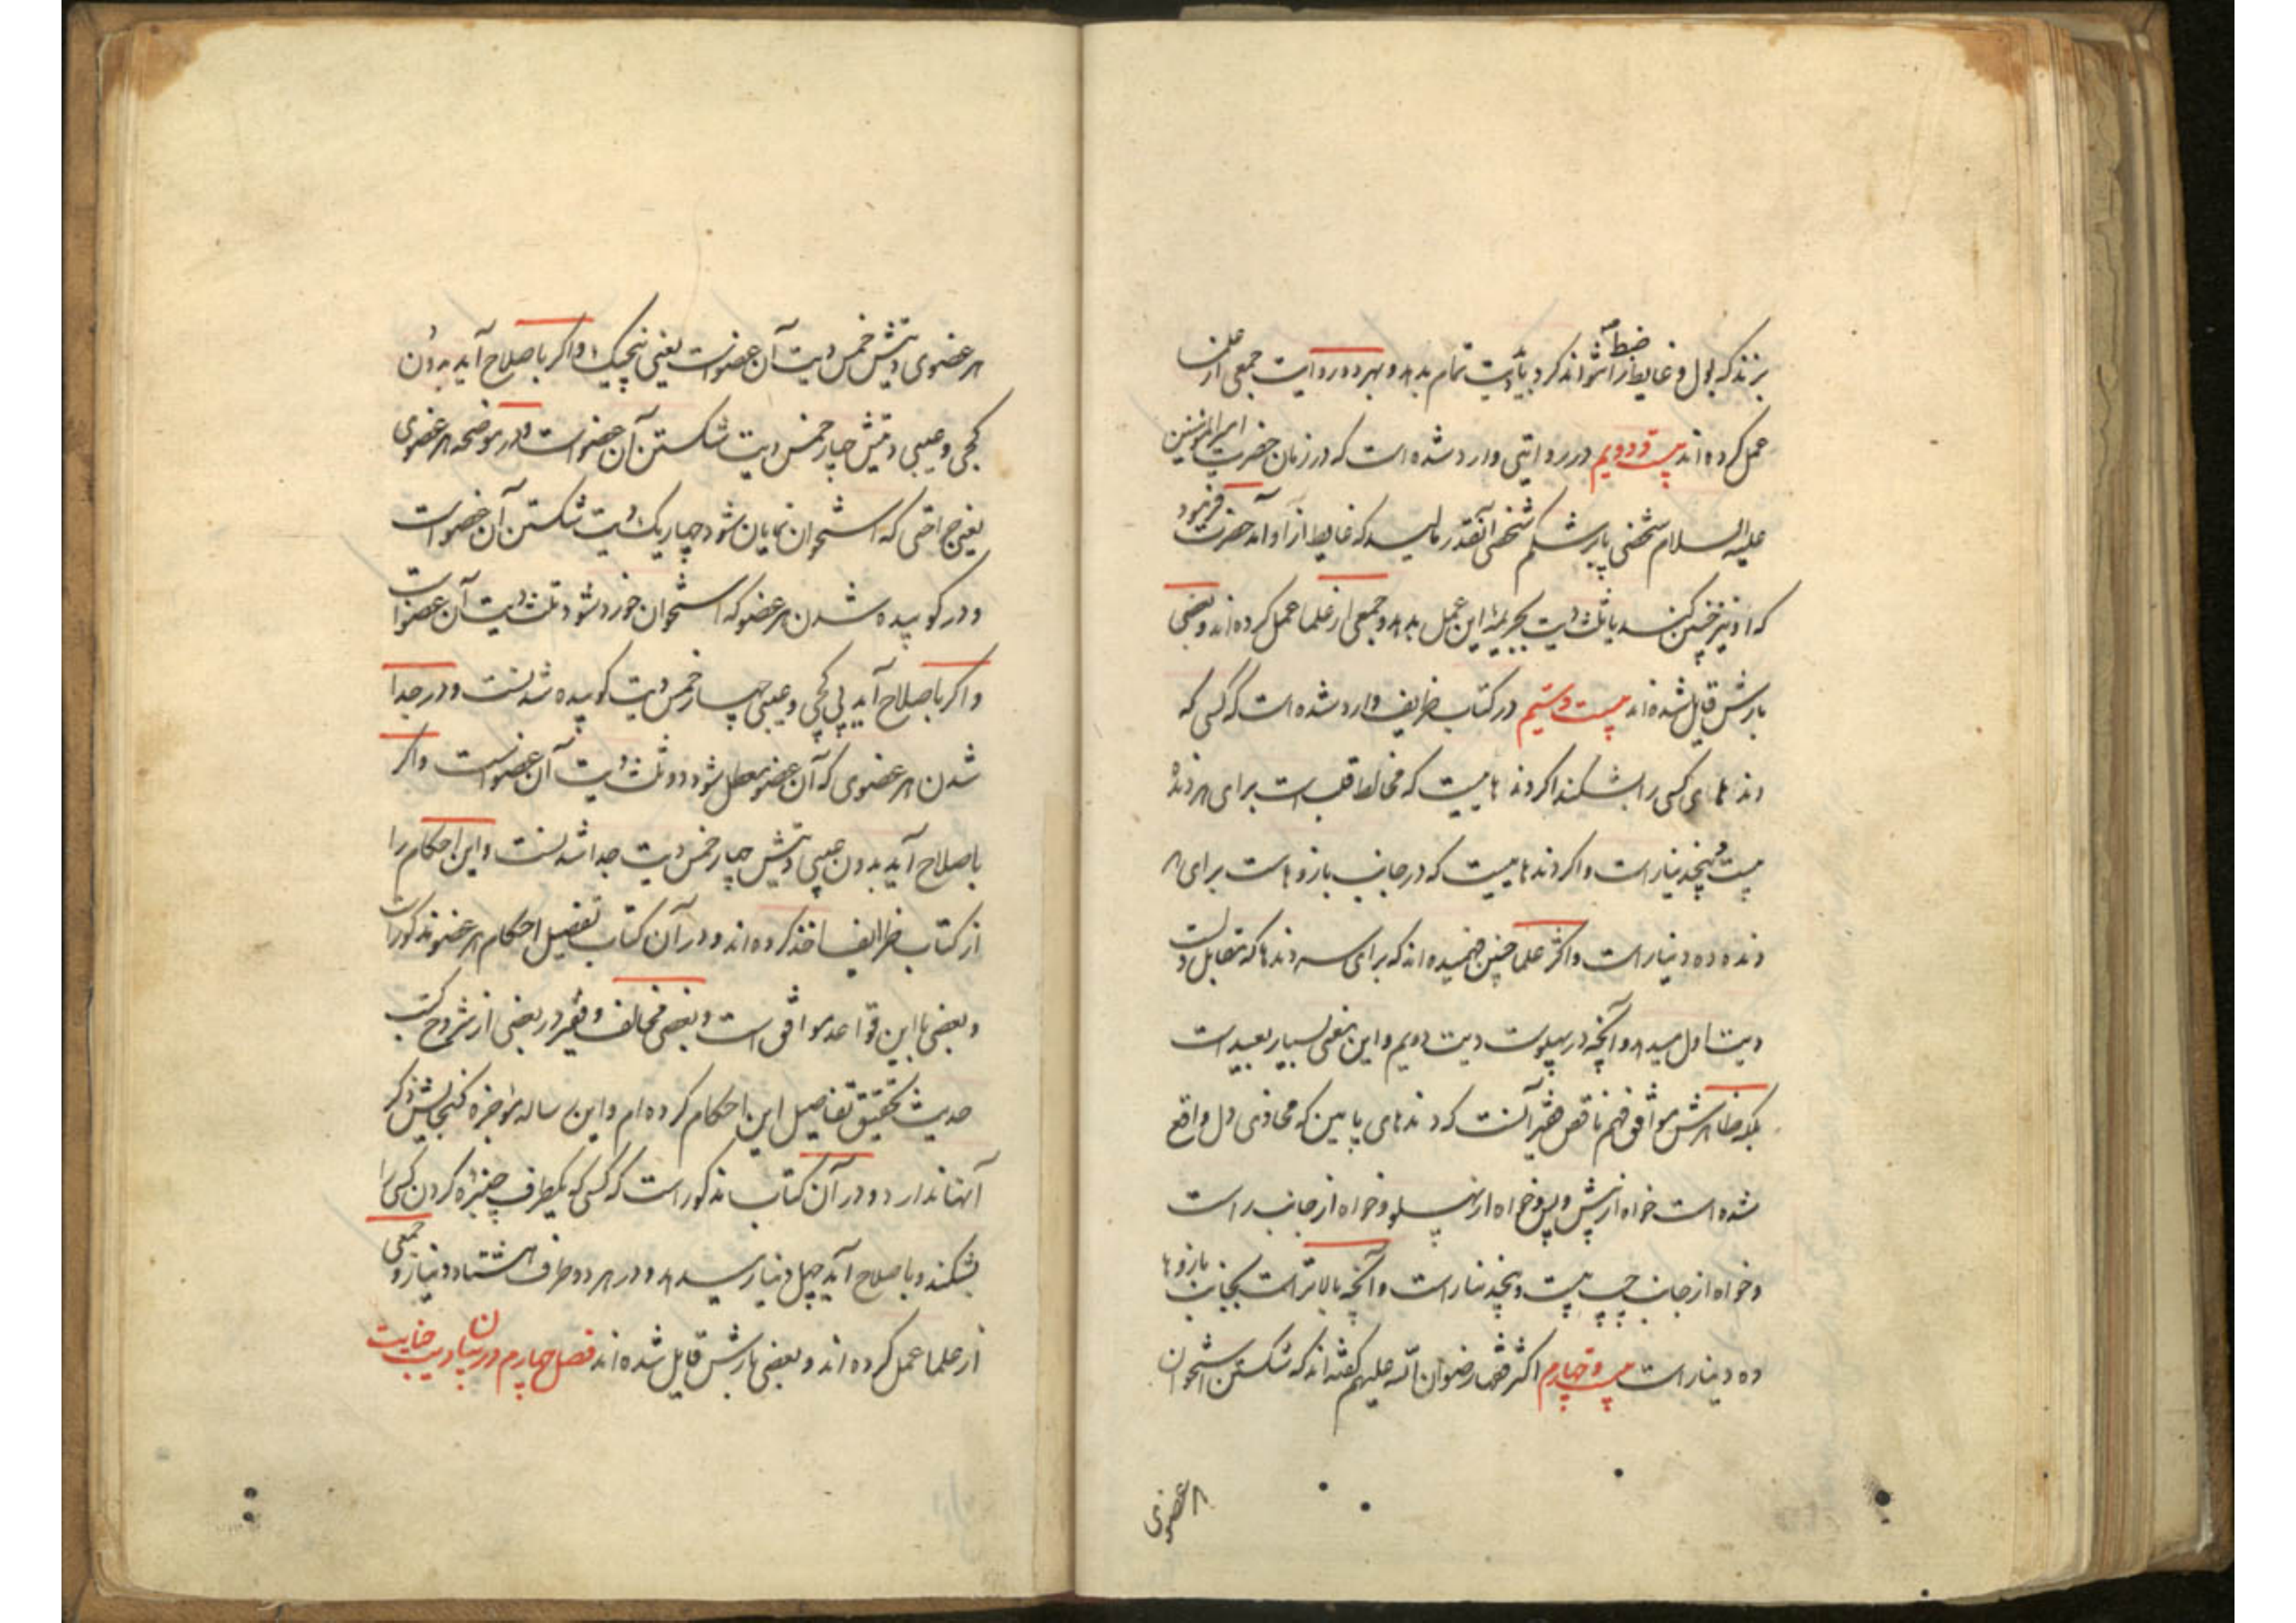 بزنند که بول و غایط را ضبط نتواند کرد باید دیت تمام بدهد و بهر دو روایت جمعی از علما
عمل کرده اند بیست و دویم در روایتی وارد شده است که در زمان حضرت امیر المؤمنین
علیه السلام شخصی پا بر شکم شخصی آنقدر مالید که غایط از او آمد حضرت فرمود
که او نیز چنین کنند یا ثلث دیت بجریمهٔ این عمل بدهد و جمعی از علما عمل کرده اند و بعضی
بارش قایل شده اند بیست و سیم در کتاب ظریف وارد شده است که کسی که
دندهای کسی را بشکند اگر دندهاییست که مخالط قلب است برای هر دندهٔ
بیست و پنج دینار است و اگر دندهاییست که در جانب بازوهاست برای هر
دنده ده دینار است و اکثر علما چنین فهمیده اند که برای سه دندها که مقابل دلست
دیت اول میدهد و آنچه در پهلوست دیت دویم و این معنی بسیار بعید است
بلکه ظاهرش موافق فهم ناقص فقیر آنست که دندهای پایین که محاذی دل واقع
شده است خواه از پیش و پس و خواه از پهلو و خواه از جانب راست
و خواه از جانب چپ بیست و پنج دینار است و آنچه بالاتر است بجانب بازوها
ده دینار است بیست و چهارم اکثر فقها رضوان الله علیهم گفته اند که شکستن استخوان
هر عضوی
هر عضوی دیتش خمس دیت آن عضو است یعنی پنج یک و اگر باصلاح آید بدون
کجی و عیبی دیتش چهار خمس دیت شکستن آن عضو است و در موضحه هر عضوی
یعنی جراحتی که استخوان نمایان شود چهار یک دیت شکستن آن عضو است
و در کوبیده شدن هر عضو که استخوان خورد شود ثلث دیت آن عضو است
و اگر باصلاح آید بی کجی و عیبی چهار خمس دیت کوبیده شدنست و در جدا
شدن هر عضوی که آن عضو معطل شود دو ثلث دیت آن عضو است و اگر
باصلاح آید بدون عیبی دیتش چهار خمس دیت جدا شدنست و این احکام را
از کتاب ظرایف اخذ کرده اند و در آن کتاب تفصیل احکام هر عضو مذکور است
و بعضی با این قواعد موافق است و بعضی مخالف و فقیر در بعضی از شروح کتب
حدیث تحقیق تفاصیل این احکام کرده ام و این رساله موجزه گنجایش ذکر
آنها ندارد و در آن کتاب مذکور است که کسی که یکطرف چنبرهٔ گردن کسی را
بشکند و باصلاح آید چهل دینار میدهد و در هر دو طرف هشتاد دینار و جمعی
از علما عمل کرده اند و بعضی بارش قایل شده اند فصل چهارم در بیان دیت جنایت